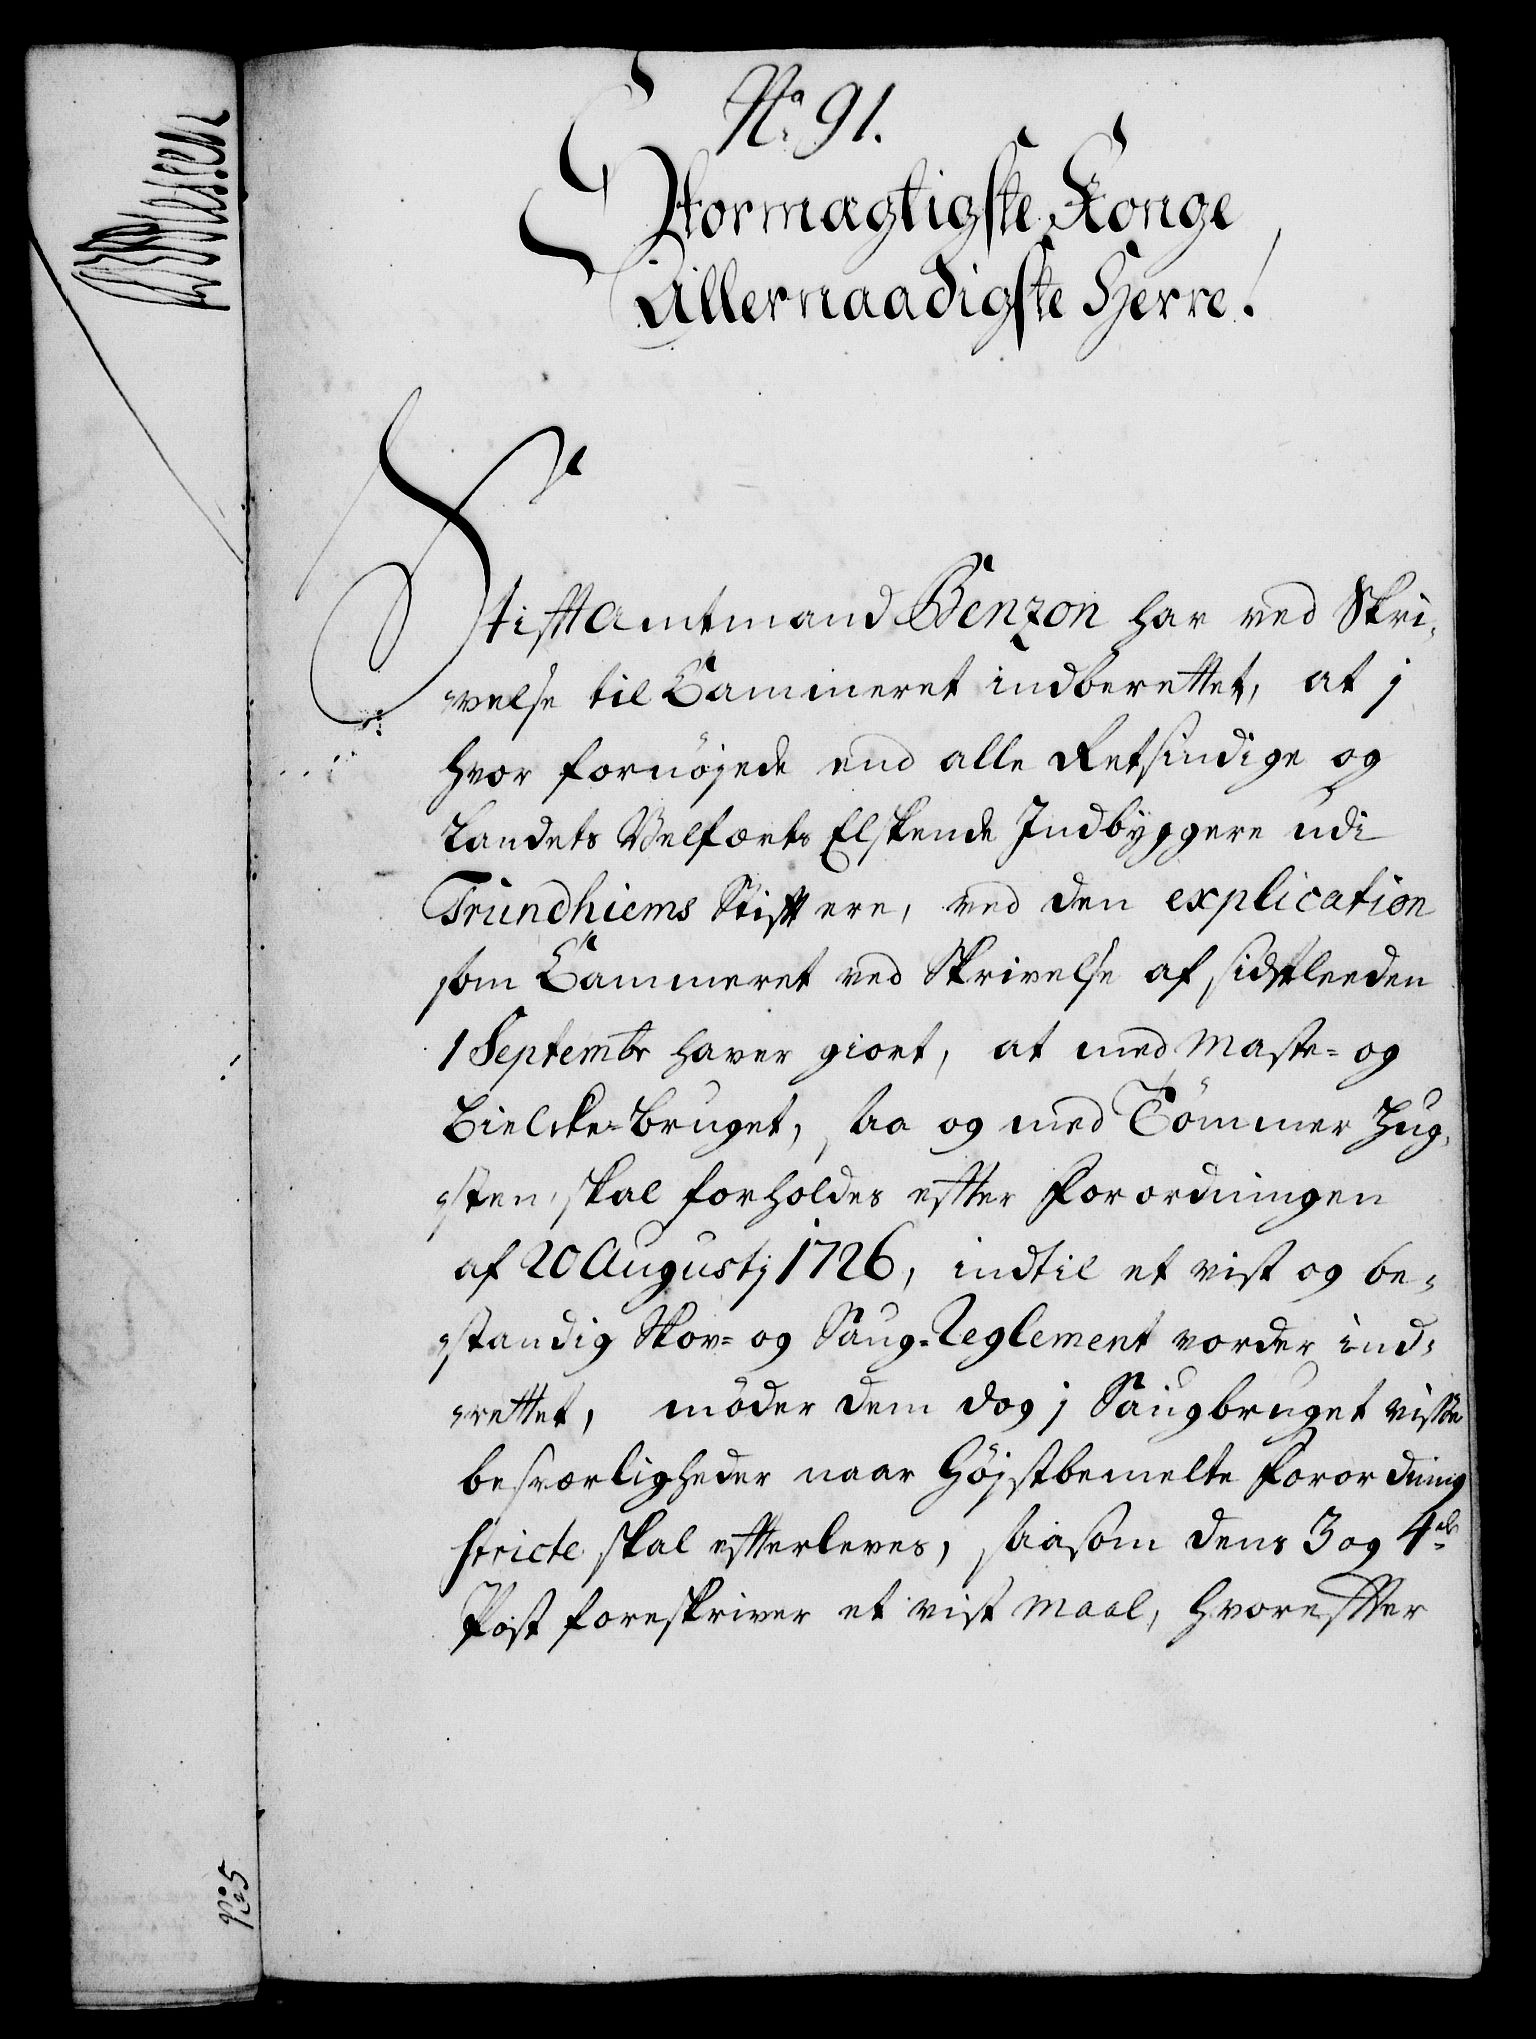 No. 91.
Stormægtigste Konge,
Allernaadigste Herre!
StifftAmtmand Benzon har ved Skri-
velse til Cammeret indberettet, at j
hvor fornøjede end alle Retsindige og
Landets Velfærts Elskende Indbyggere udi
Trundhiems Stifft ere, ved den explication
som Cammeret ved Skrivelse af sidstleeden
1 Septembr haver giort, at med Maste- og
Bielcke-bruget, saa og med Tömmer Hug-
sten, skal forholdes effter Forordningen
af 20 Augustj 1726, indtil et vist og be-
standig Skov- og Saug-Reglement vorder ind-
rettet, möder dem dog j Saugbruget visse
besværligheder naar Højstbemelte Forordning
stricte skal effterleves, saasom dens 3 og 4de
Post foreskriver et vist Maal, hvoreffter
No. 5